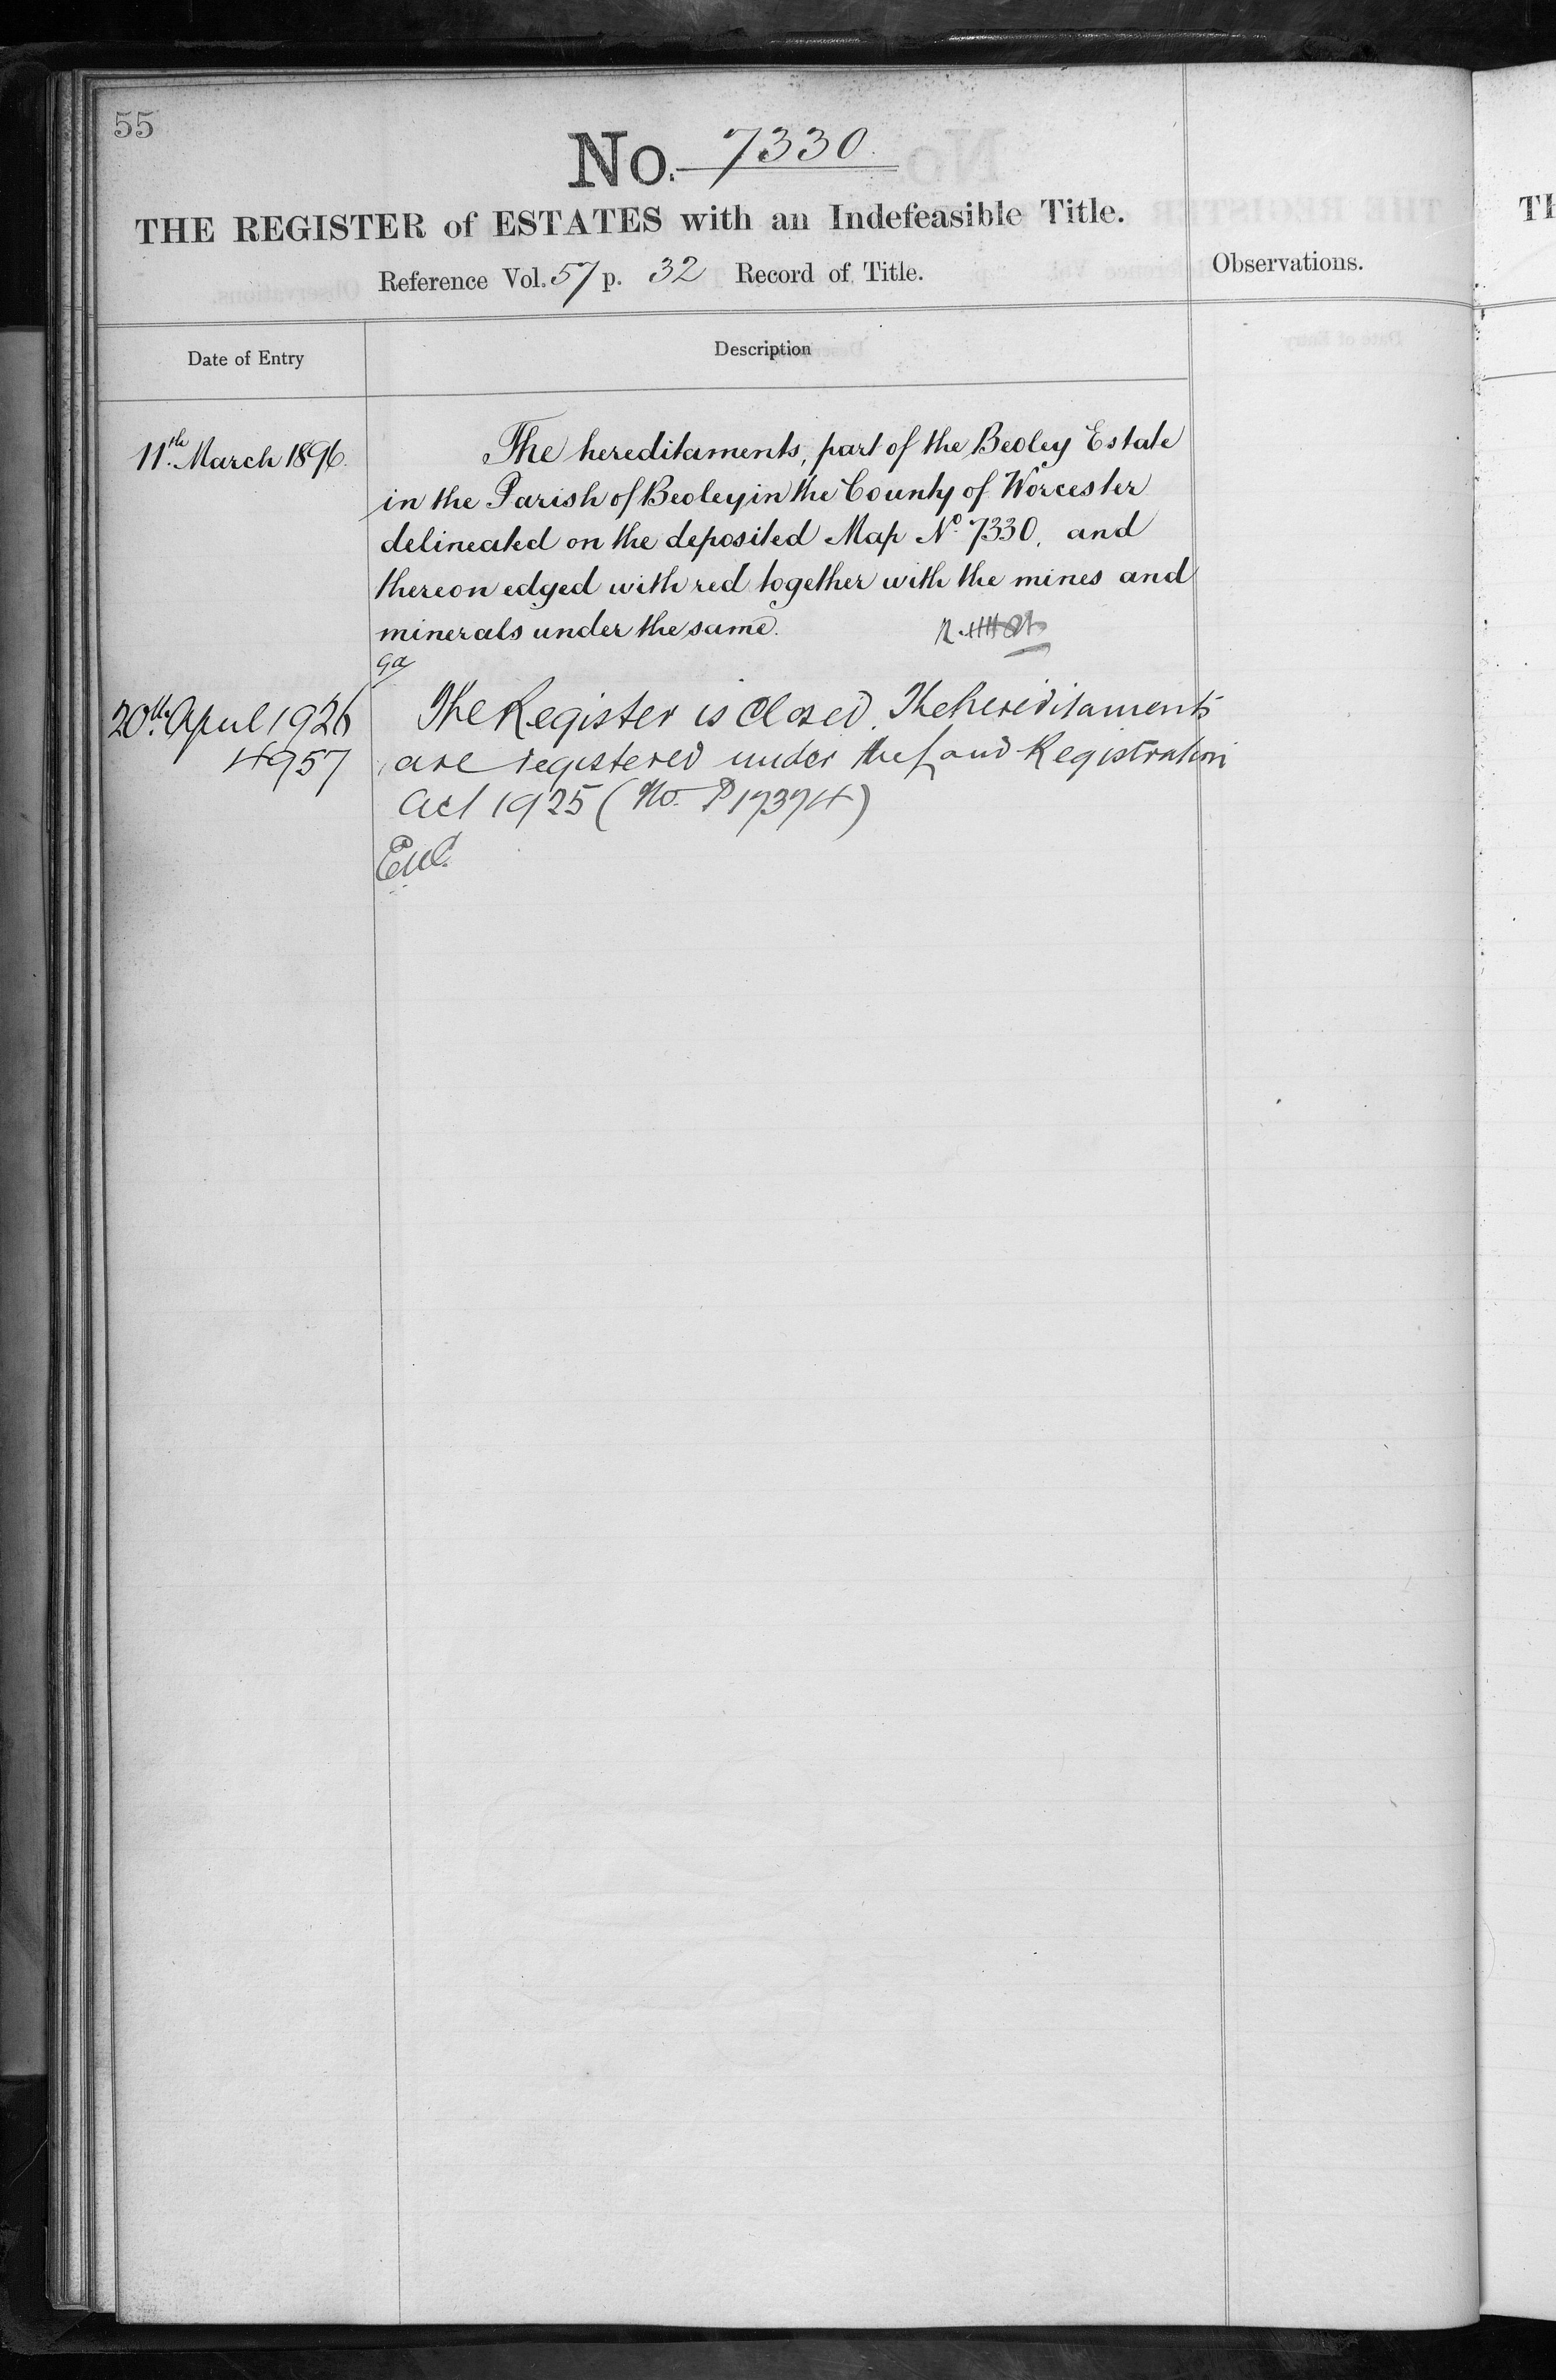 55
No. 7330.
THE REGISTER of ESTATES with an Indefeasible Title.
Reference Vol. 57 p. 32 Record of Title.
Observations.
Date of Entry
Description
11th. March 1896.
The hereditaments, part of the Beoley Estate
in the Parish of Beoley in the County of Worcester
delineated on the deposited Map No. 7330, and
thereon edged with red together with the mines and
minerals under the same.
20th. April 1926
4957
The Register is closed. The hereditaments
are registered under the Land Registration
Act 1925 (No. P17374)
TH